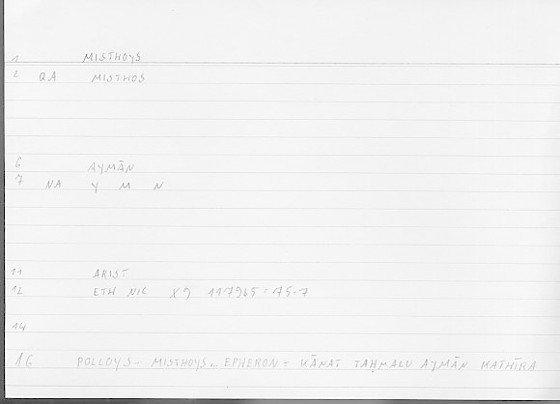 1 MISTHOYS
2 QA MISTHOS
6 AYMĀN
7 NA Y M N
11 ARIST
12 ETH NIC X9 1179b5 = 75.7
14
16 POLLOYS – MISTHOYS .. EPHERON = KĀNAT TAḤMALU AYMĀN KATHĪRA